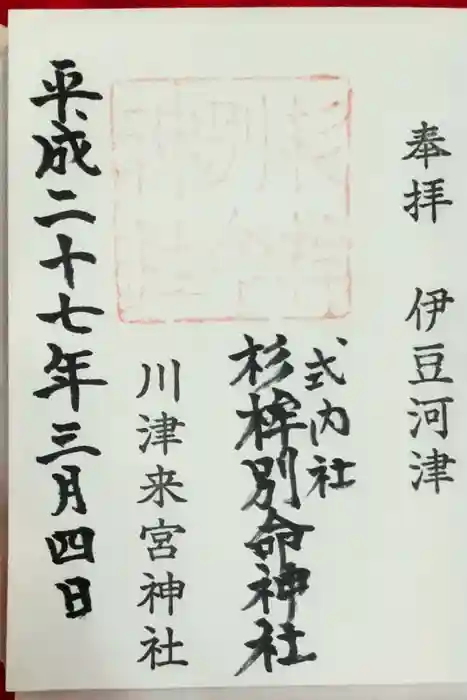 奉拝 伊豆河津
式内社
杉桙別命神社
川津来宮神社
平成二十七年三月四日